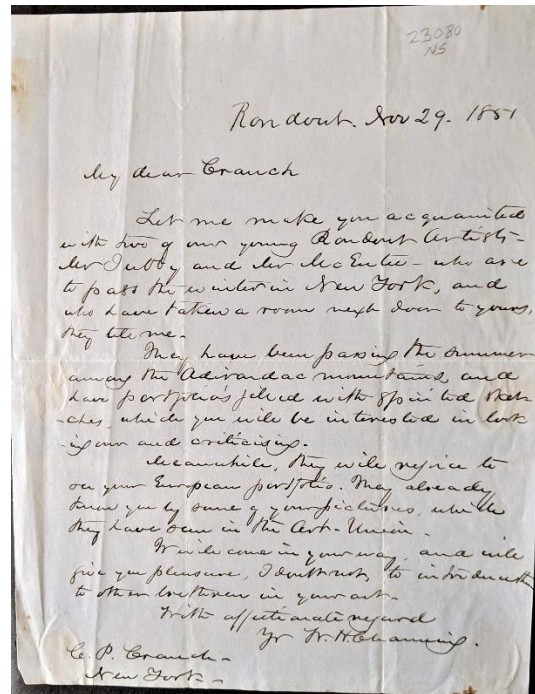 23080
NS
Rondout. Nov 29. 1851
My dear Cranch
Let me make you acquainted
with two of our young Rondout Artists -
Mr Tubby and Mr McEntee - who are
to pass the winter in New York, and
who have taken a room next door to yours,
they tell me.
They have been passing the summer
among the Adirondac mountains, and
have portfolios filled with spirited sket-
-ches, which you will be interested in look
-ing over and criticising.
Meanwhile, they will rejoice to
see your European portfolio. They already
know you by some of your pictures, which
they have seen in the Art-Union.
It will come in your way, and will
give you pleasure, I doubt not, to introduce them
to other brethren in your art.
With affectionate regard
Yr W. H. Channing.
C. P. Cranch -
New York -